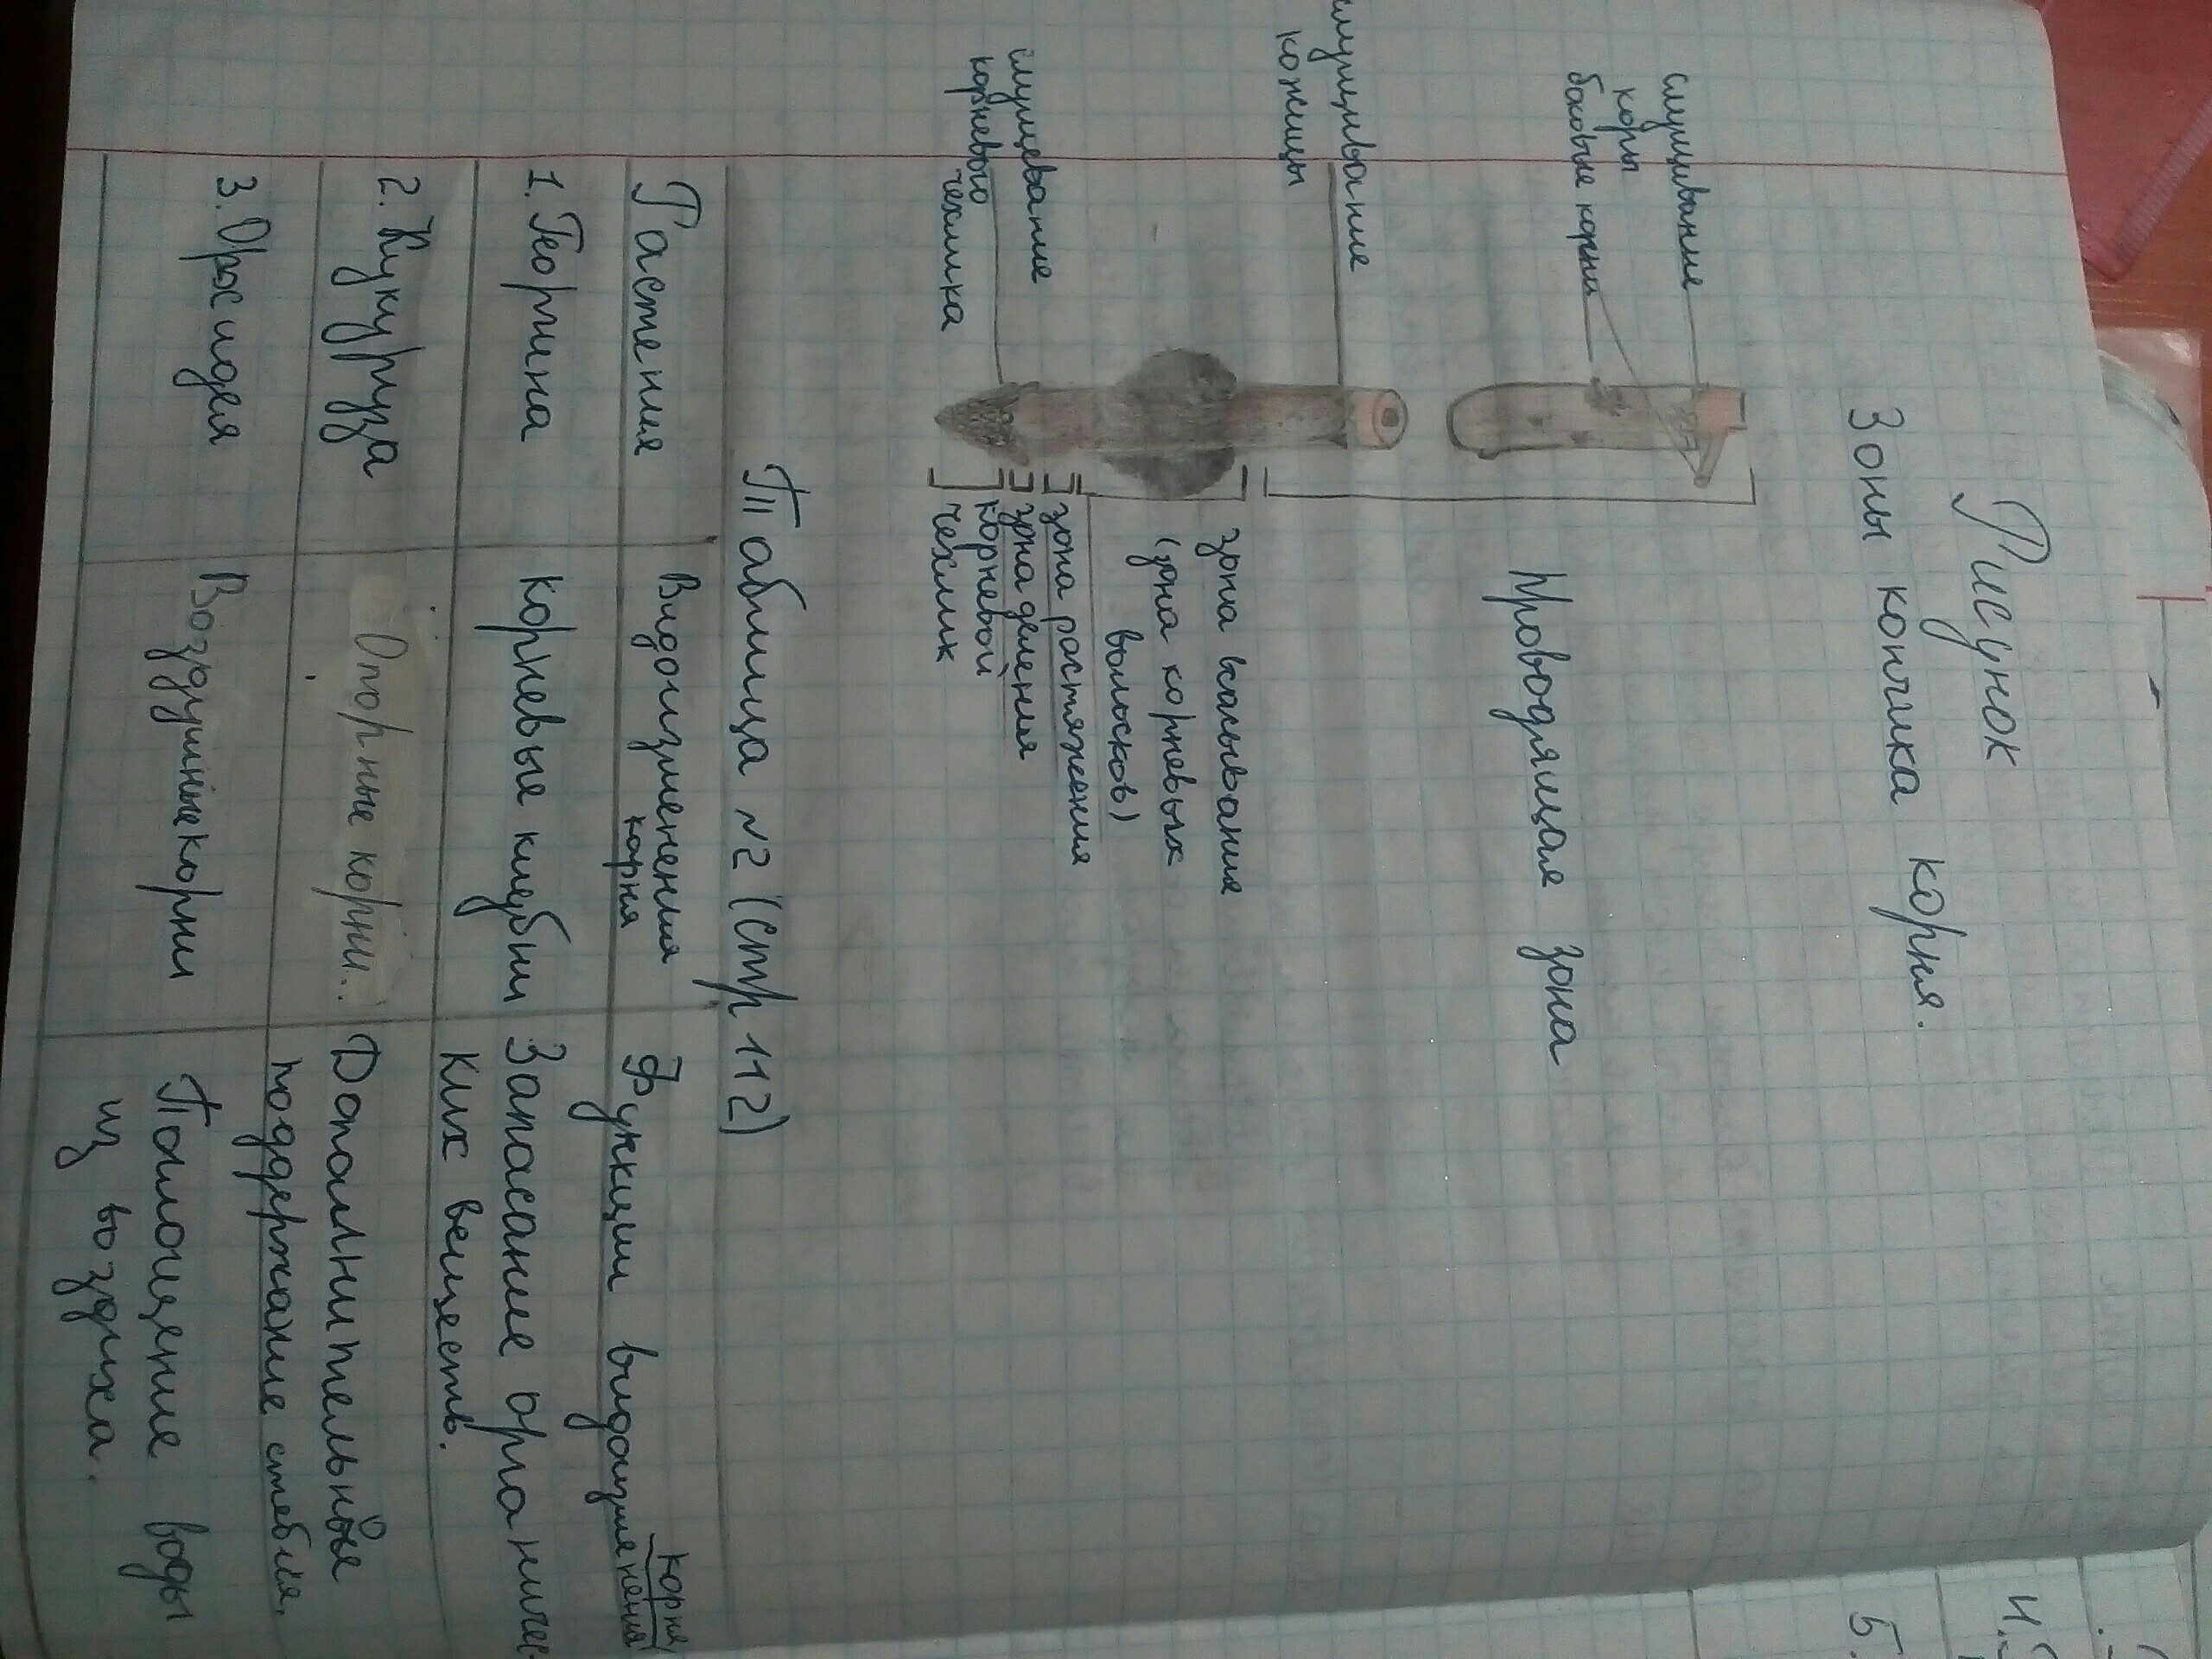 Рисунок
Зоны кончика корня.
слущивание
коры
боковые корни
Проводящая зона
слущивание
кожицы
зона всасывания
(зона корневых
волосков)
зона растяжения
зона деления
корневой
чехлик
слущевание
корневого
чехлика
Таблица №2 (стр 112)
Растения
Видоизменения
корня
Функции видоизменения
корня
1. Георгина
корневые клубни
Запасание органичес-
ких веществ.
2. Кукуруза
Опорные корни..
Дополнительные
поддержание стебля.
3. Орхидея
Воздушные корни
Поглощение воды
из воздуха.
5.